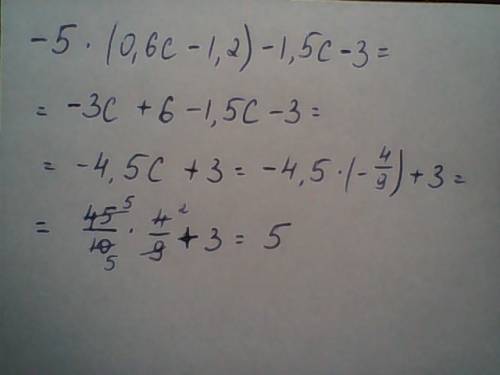 -5 · (0,6c - 1,2) - 1,5c - 3 =
= -3c + 6 - 1,5c - 3 =
= -4,5c + 3 = -4,5 · (-4/9) + 3 =
= 45 5/10 5 · 4 2/9 + 3 = 5